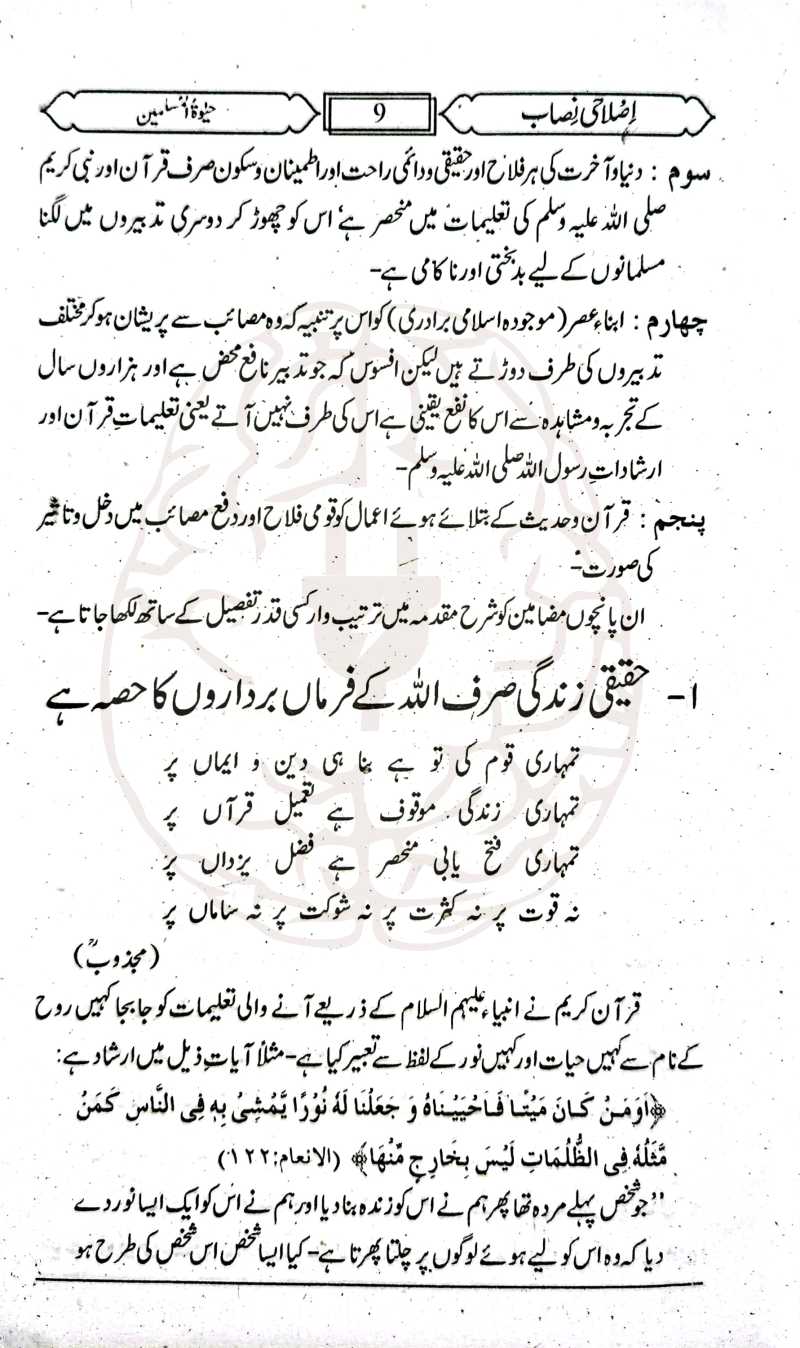 اِصْلاحی نِصاب 9 حیٰوۃُ المُسلمین
سوم : دنیا و آخرت کی ہر فلاح اور حقیقی و دائمی راحت اور اطمینان و سکون صرف قرآن اور نبی کریم
صلی اللہ علیہ وسلم کی تعلیمات میں منحصر ہے، اس کو چھوڑ کر دوسری تدبیروں میں لگنا
مسلمانوں کے لیے بدبختی اور ناکامی ہے-
چہارم : ابناءِ عصر (موجودہ اسلامی برادری) کو اس پر تنبیہ کہ وہ مصائب سے پریشان ہو کر مختلف
تدبیروں کی طرف دوڑتے ہیں لیکن افسوس کہ جو تدبیر نافع محض ہے اور ہزاروں سال
کے تجربہ و مشاہدہ سے اس کا نفع یقینی ہے اس کی طرف نہیں آتے یعنی تعلیماتِ قرآن اور
ارشاداتِ رسول اللہ صلی اللہ علیہ وسلم-
پنجم : قرآن و حدیث کے بتلائے ہوئے اعمال کو قومی فلاح اور دفع مصائب میں دخل و تاثیر
کی صورت-
ان پانچوں مضامین کو شرح مقدمہ میں ترتیب وار کسی قدر تفصیل کے ساتھ لکھا جاتا ہے-
۱- حقیقی زندگی صرف اللہ کے فرماں برداروں کا حصہ ہے
تمہاری قوم کی تو ہے بنا ہی دین و ایماں پر
تمہاری زندگی موقوف ہے تعمیل قرآں پر
تمہاری فتح یابی منحصر ہے فضل یزداں پر
نہ قوت پر نہ کثرت پر نہ شوکت پر نہ ساماں پر
(مجذوبؒ)
قرآن کریم نے انبیاء علیہم السلام کے ذریعے آنے والی تعلیمات کو جا بجا کہیں روح
کے نام سے کہیں حیات اور کہیں نور کے لفظ سے تعبیر کیا ہے- مثلاً آیاتِ ذیل میں ارشاد ہے:
﴿اَوَمَنْ كَانَ مَيْتًا فَاَحْيَيْنَاهُ وَ جَعَلْنَا لَهٗ نُوْرًا يَّمْشِىْ بِهٖ فِى النَّاسِ كَمَنْ
مَّثَلُهٗ فِى الظُّلُمَاتِ لَيْسَ بِخَارِجٍ مِّنْهَا﴾ (الانعام:۱۲۲)
”جو شخص پہلے مردہ تھا پھر ہم نے اس کو زندہ بنا دیا اور ہم نے اس کو ایک ایسا نور دے
دیا کہ وہ اس کو لیے ہوئے لوگوں پر چلتا پھرتا ہے- کیا ایسا شخص اس شخص کی طرح ہو